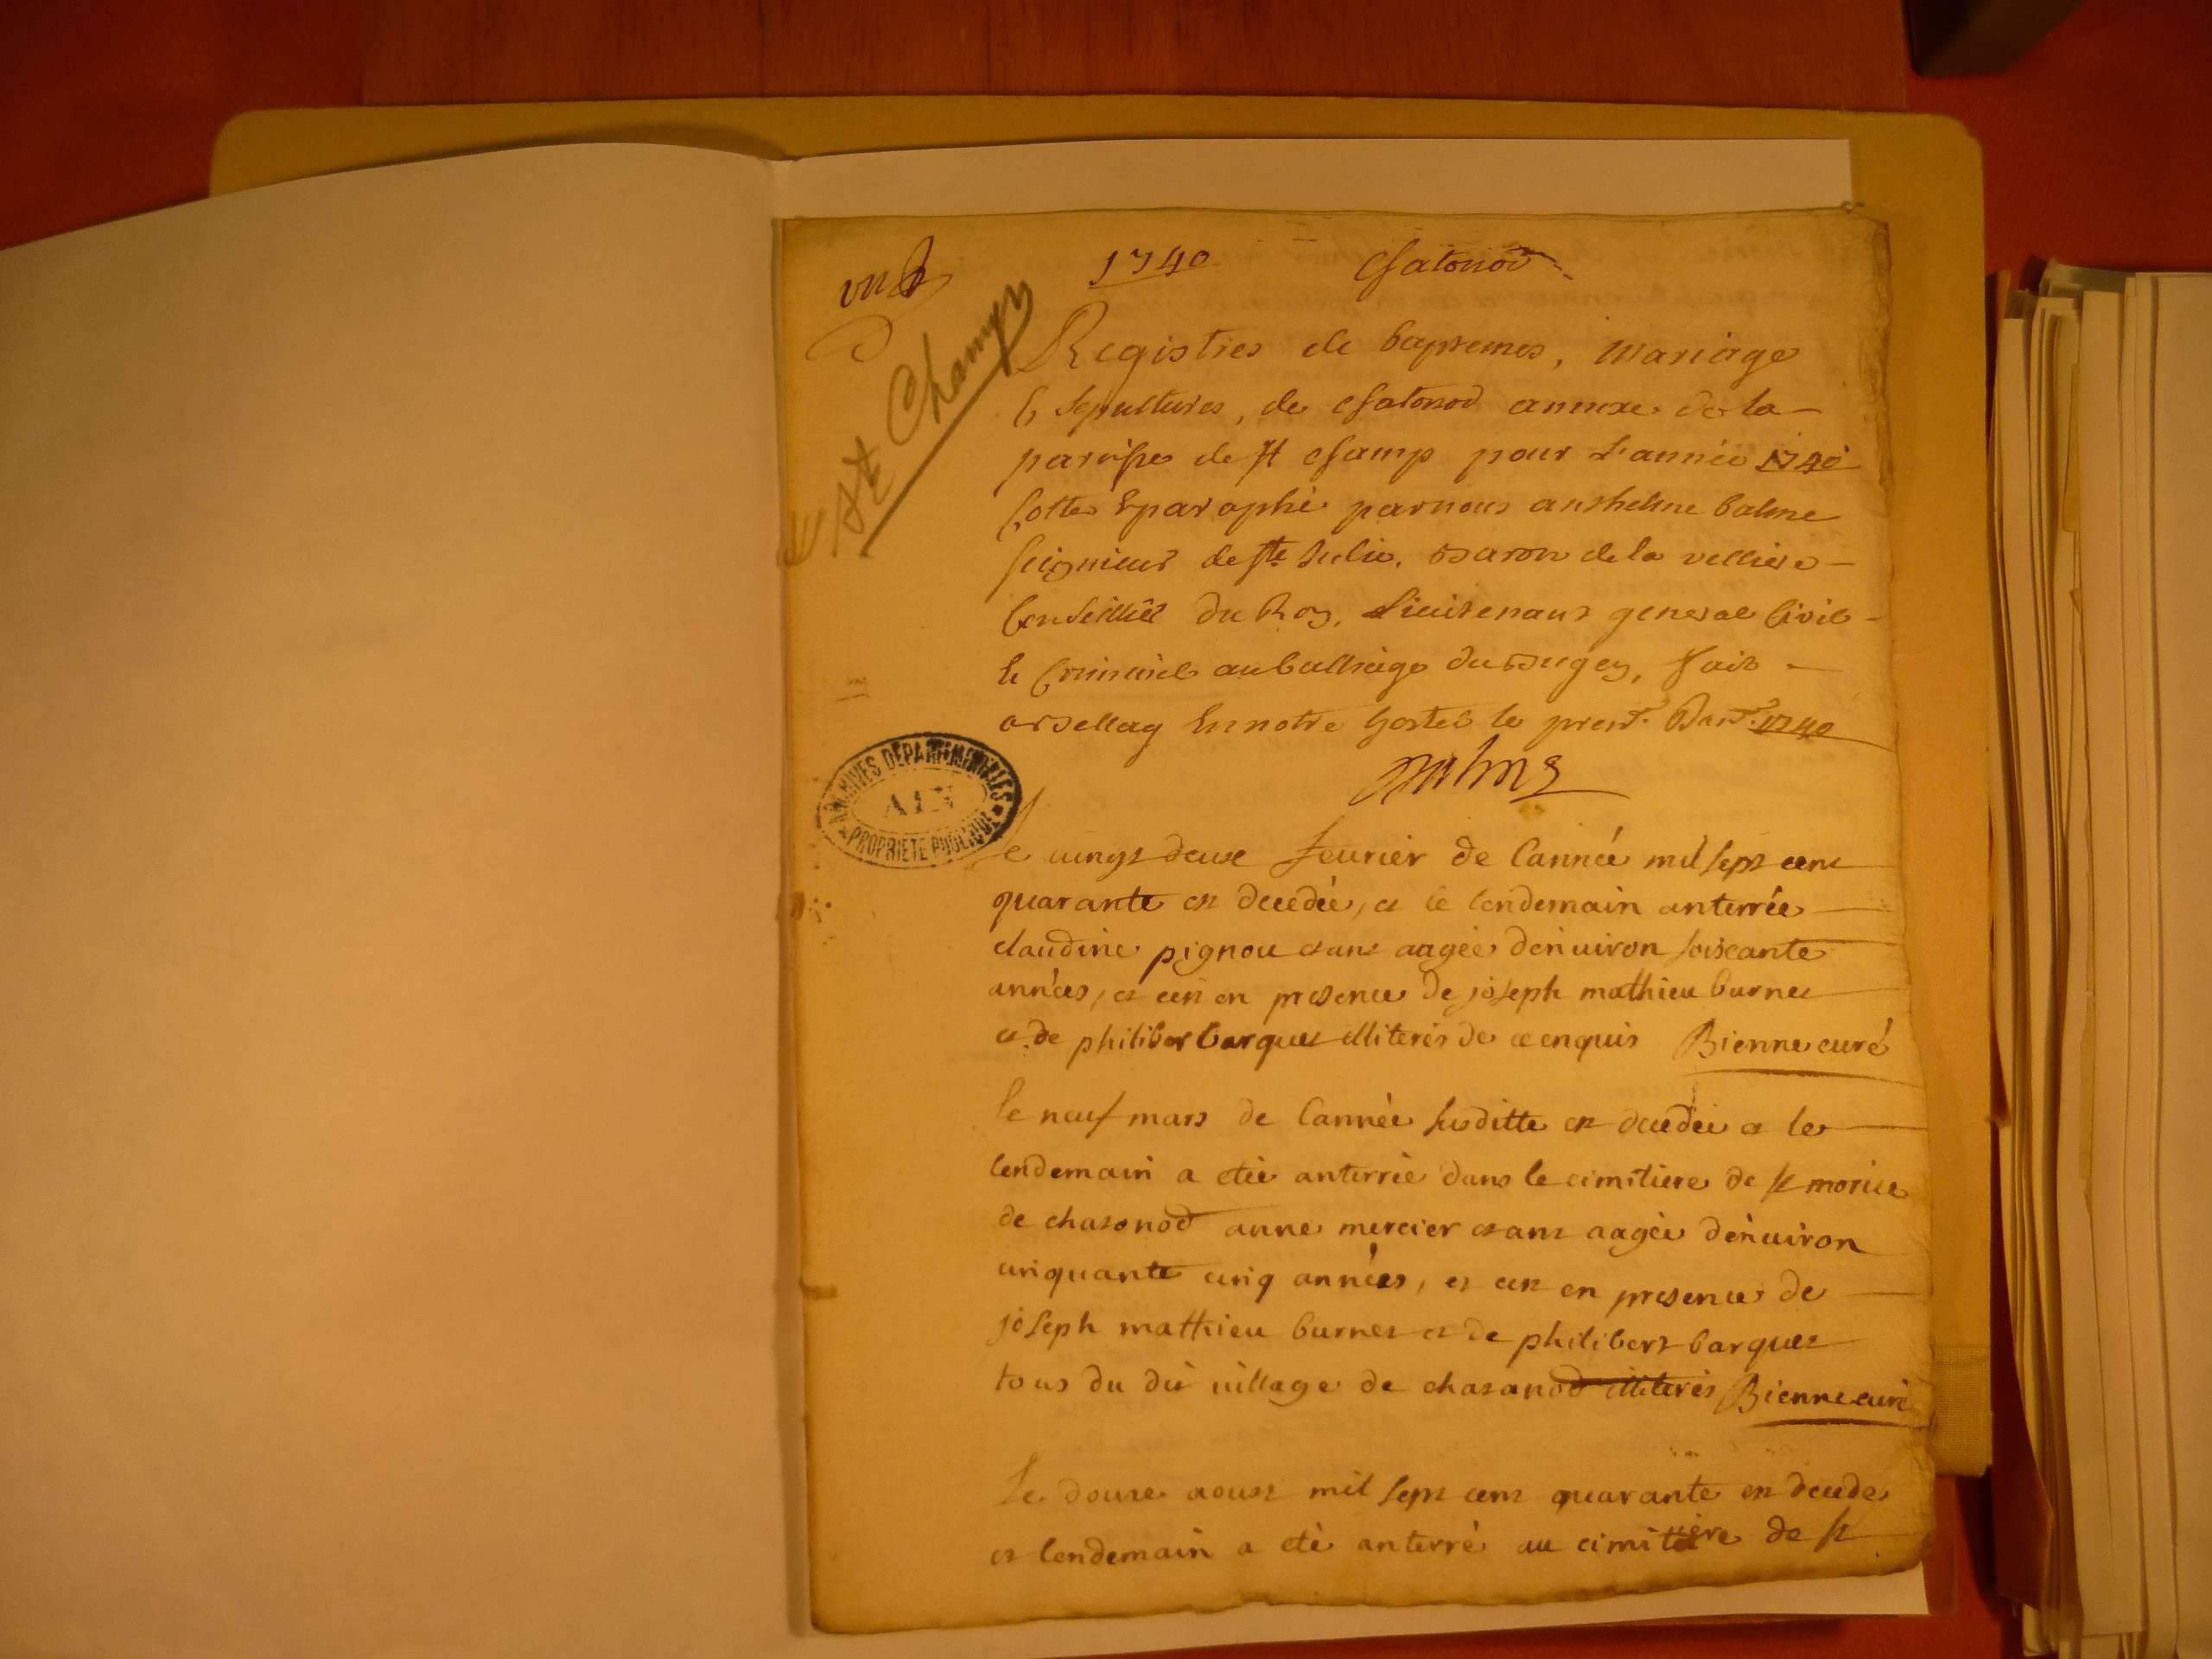 1740 Chatonod
St Champ
Registres de baptemes, mariage
& sepultures, de chatonod annexe de la
paroisse de St champ pour L'année 1740
Cotté & paraphé par nous anthelme balme
seigneur de ste Julie, Baron de la velliere
Conseiller du Roy, Lieutenant general Civil
& Criminel au balliage du Bugey, fait
a Bellay En notre hostel le prem.r Jan.r 1740
Balme
ARCHIVES DÉPARTEMENTALES
AIN
PROPRIÉTÉ PUBLIQUE
le vingt deux feurier de l'année mil sept cent
quarante est decedée, et le lendemain anterrée
claudine pignou etant aagée d'enuiron soixante
années, et cest en presence de joseph mathieu burnet
et de philiber barquet illiterés de ce enquis Bienne curé
le neuf mars de l'année susditte est decedée et le
lendemain a etée anterrée dans le cimitiere de st morice
de chatonod anne mercier etant aagée d'enuiron
cinquante cinq années, et cest en presence de
joseph mathieu burnet et de philibert barquet
tous du dit village de chatanod illiterés Bienne curé
Le douze aoust mil sept cent quarante est decede
et lendemain a eté anterré au cimitiere de st